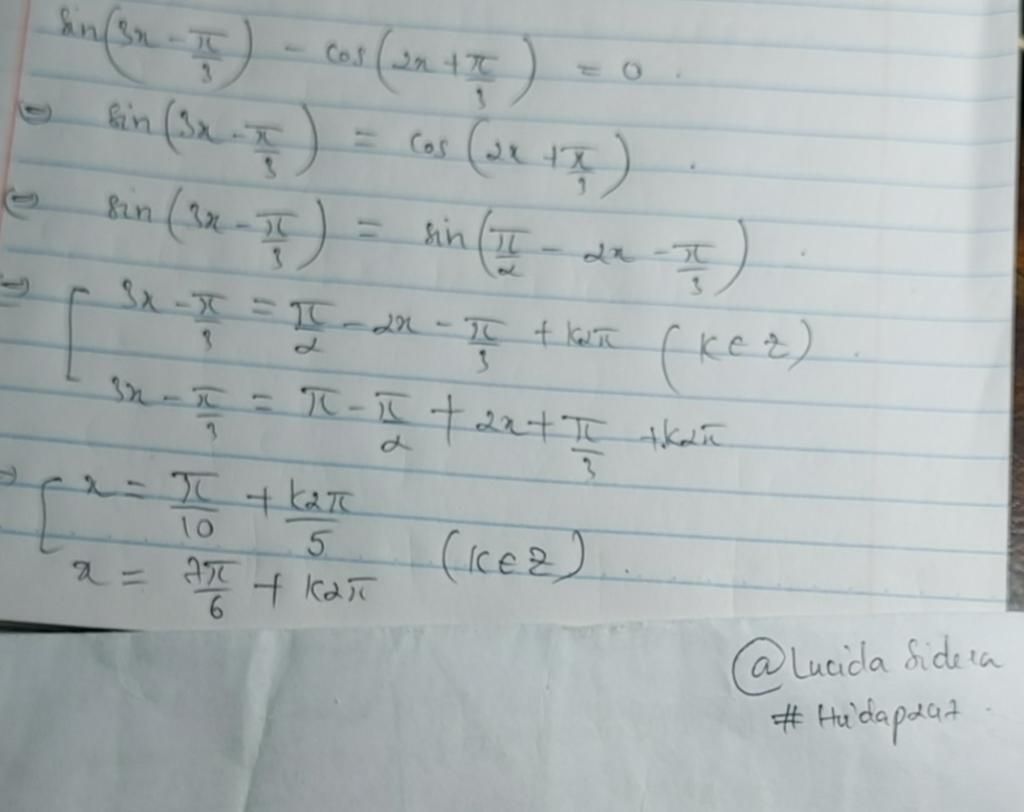 sin(3x - π/3) - cos(2x + π/3) = 0.
⇔ sin(3x - π/3) = cos(2x + π/3).
⇔ sin(3x - π/3) = sin(π/2 - 2x - π/3).
⇔ [ 3x - π/3 = π/2 - 2x - π/3 + k2π (k∈Z).
3x - π/3 = π - π/2 + 2x + π/3 + k2π
⇔ [ x = π/10 + k2π/5
x = 7π/6 + k2π (k∈Z).
@Lucida Sidera
#Hoidap247.